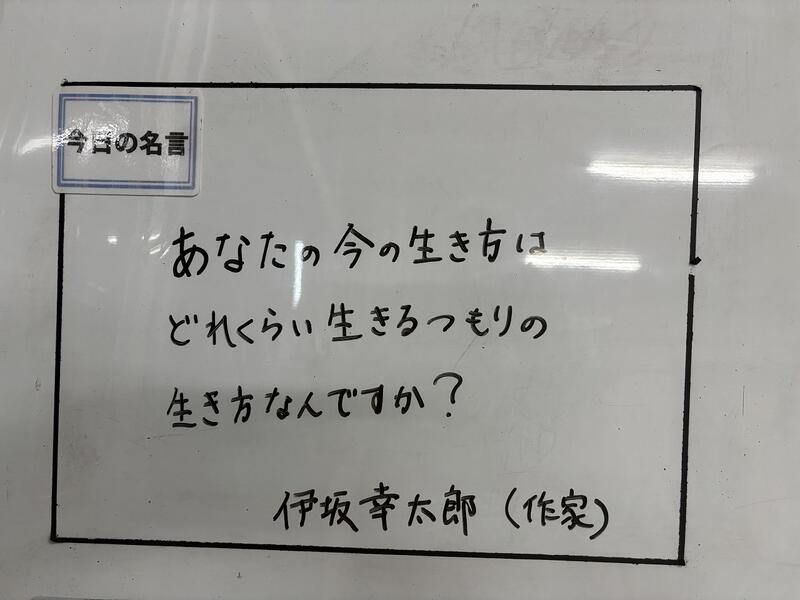 今日の名言
あなたの今の生き方は
どれくらい生きるつもりの
生き方なんですか?
伊坂幸太郎(作家)